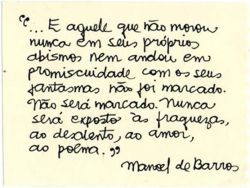 "... E aquele que não morou
nunca em seus próprios
abismos nem andou em
promiscuidade com os seus
fantasmas não foi marcado.
Não será marcado. Nunca
será exposto às fraquezas,
ao desalento, ao amor,
ao poema."
Manoel de Barros